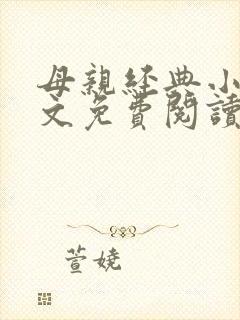 母親經典小
文免費閱讀
萱嬈